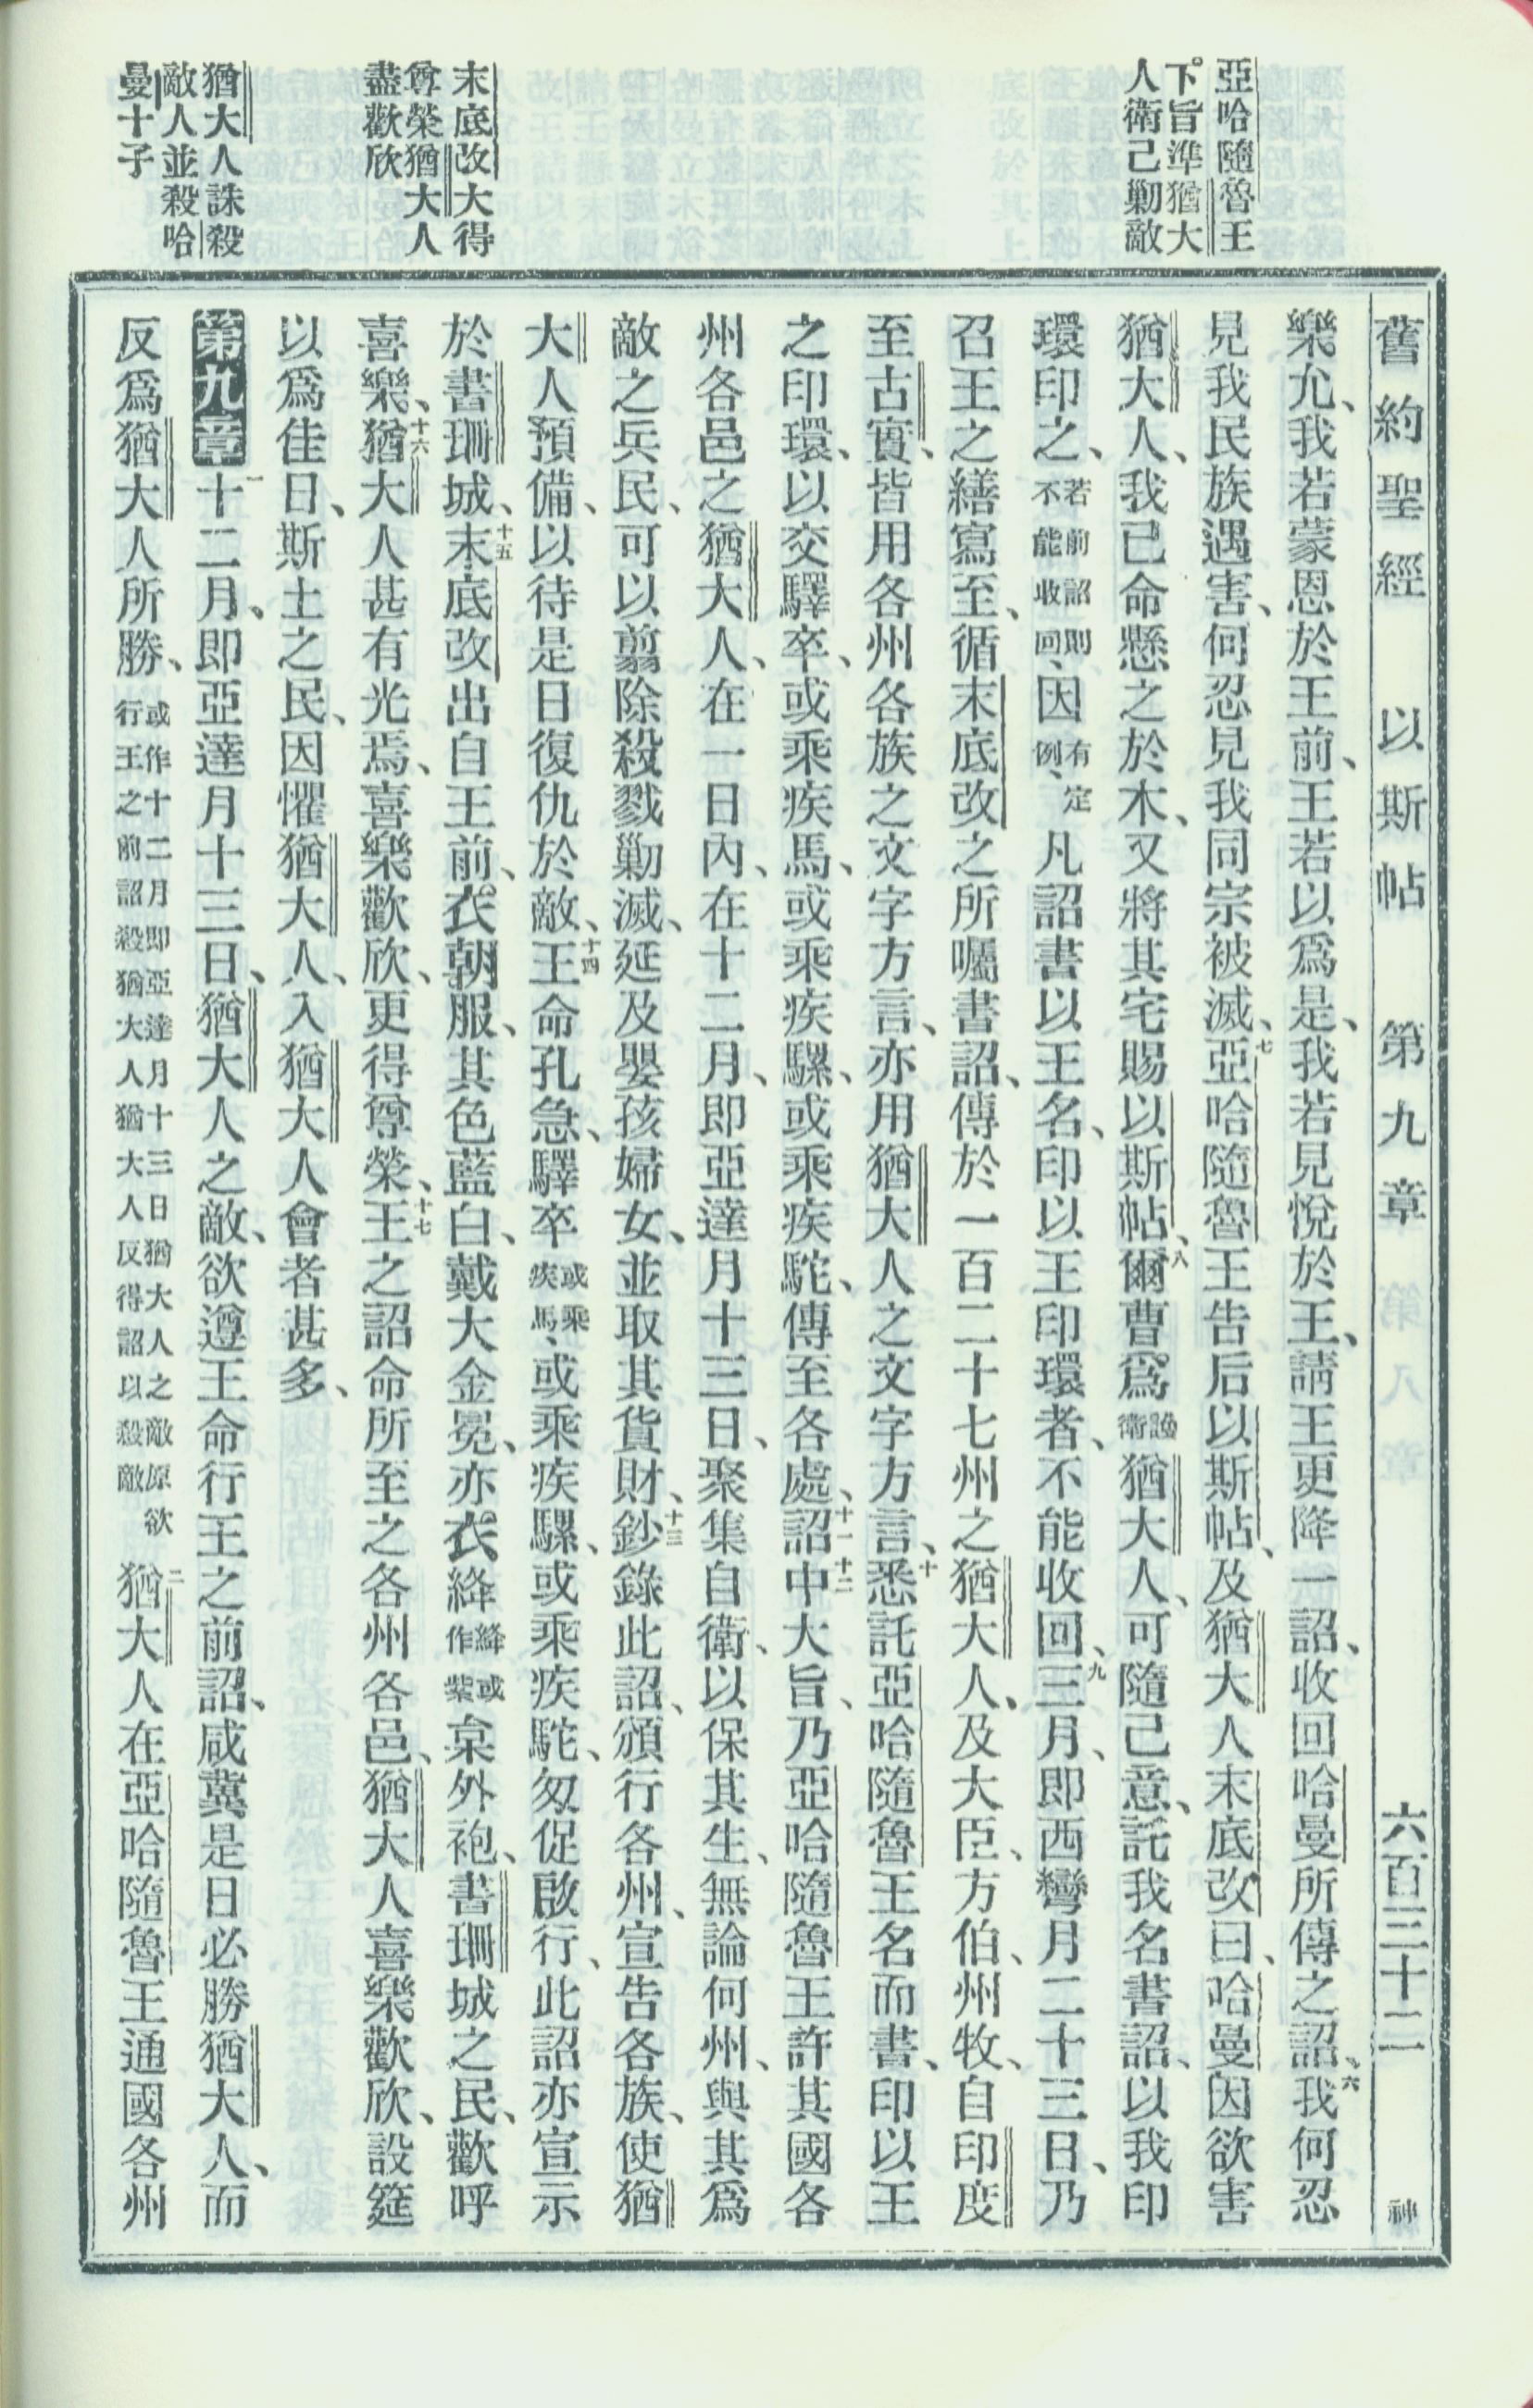 舊約聖經 以斯帖 第九章 六百三十二 神
亞哈隨魯王
下旨準猶大
人衛己勦敵
末底改大得
尊榮猶大人
盡歡欣
猶大人誅殺
敵人並殺哈
曼十子
樂允、我若蒙恩於王前、王若以爲是、我若見悅於王、請王更降一詔、收回哈曼所傳之詔、六我何忍
見我民族遇害、何忍見我同宗被滅、七亞哈隨魯王告后以斯帖、及猶大人末底改曰、哈曼因欲害
猶大人、我已命懸之於木、又將其宅賜以斯帖、八爾曹爲護衛猶大人、可隨己意、託我名書詔、以我印
環印之、若前詔則不能收回、因有定例、凡詔書以王名、印以王印環者、不能收回、九三月、即西彎月二十三日、乃
召王之繕寫至、循末底改之所囑書詔、傳於一百二十七州之猶大人、及大臣、方伯、州牧、自印度
至古實、皆用各州各族之文字方言、亦用猶大人之文字方言、十悉託亞哈隨魯王名而書、印以王
之印環、以交驛卒、或乘疾馬、或乘疾騾、或乘疾駝、傳至各處、十一十二詔中大旨、乃亞哈隨魯王許其國各
州各邑之猶大人、在一日內、在十二月、即亞達月十三日、聚集自衛、以保其生、無論何州、與其爲
敵之兵民、可以翦除殺戮勦滅、延及嬰孩婦女、並取其貨財、十三鈔錄此詔、頒行各州、宣告各族、使猶
大人預備、以待是日復仇於敵、十四王命孔急、驛卒或乘疾馬、或乘疾騾、或乘疾駝、匆促啟行、此詔亦宣示
於書珊城、十五末底改出自王前、衣朝服、其色藍白、戴大金冕、亦衣絳絳或作紫枲外袍、書珊城之民、歡呼
喜樂、十六猶大人甚有光焉、喜樂歡欣、更得尊榮、十七王之詔命所至之各州各邑、猶大人喜樂歡欣、設筵
以爲佳日、斯土之民、因懼猶大人、入猶大人會者甚多、
第九章 一十二月、即亞達月十三日、猶大人之敵、欲遵王命行王之前詔、咸冀是日必勝猶大人、而
反爲猶大人所勝、或作十二月即亞達月十三日猶大人之敵原欲行王之前詔殺猶大人猶大人反得詔以殺敵二猶大人在亞哈隨魯王通國各州